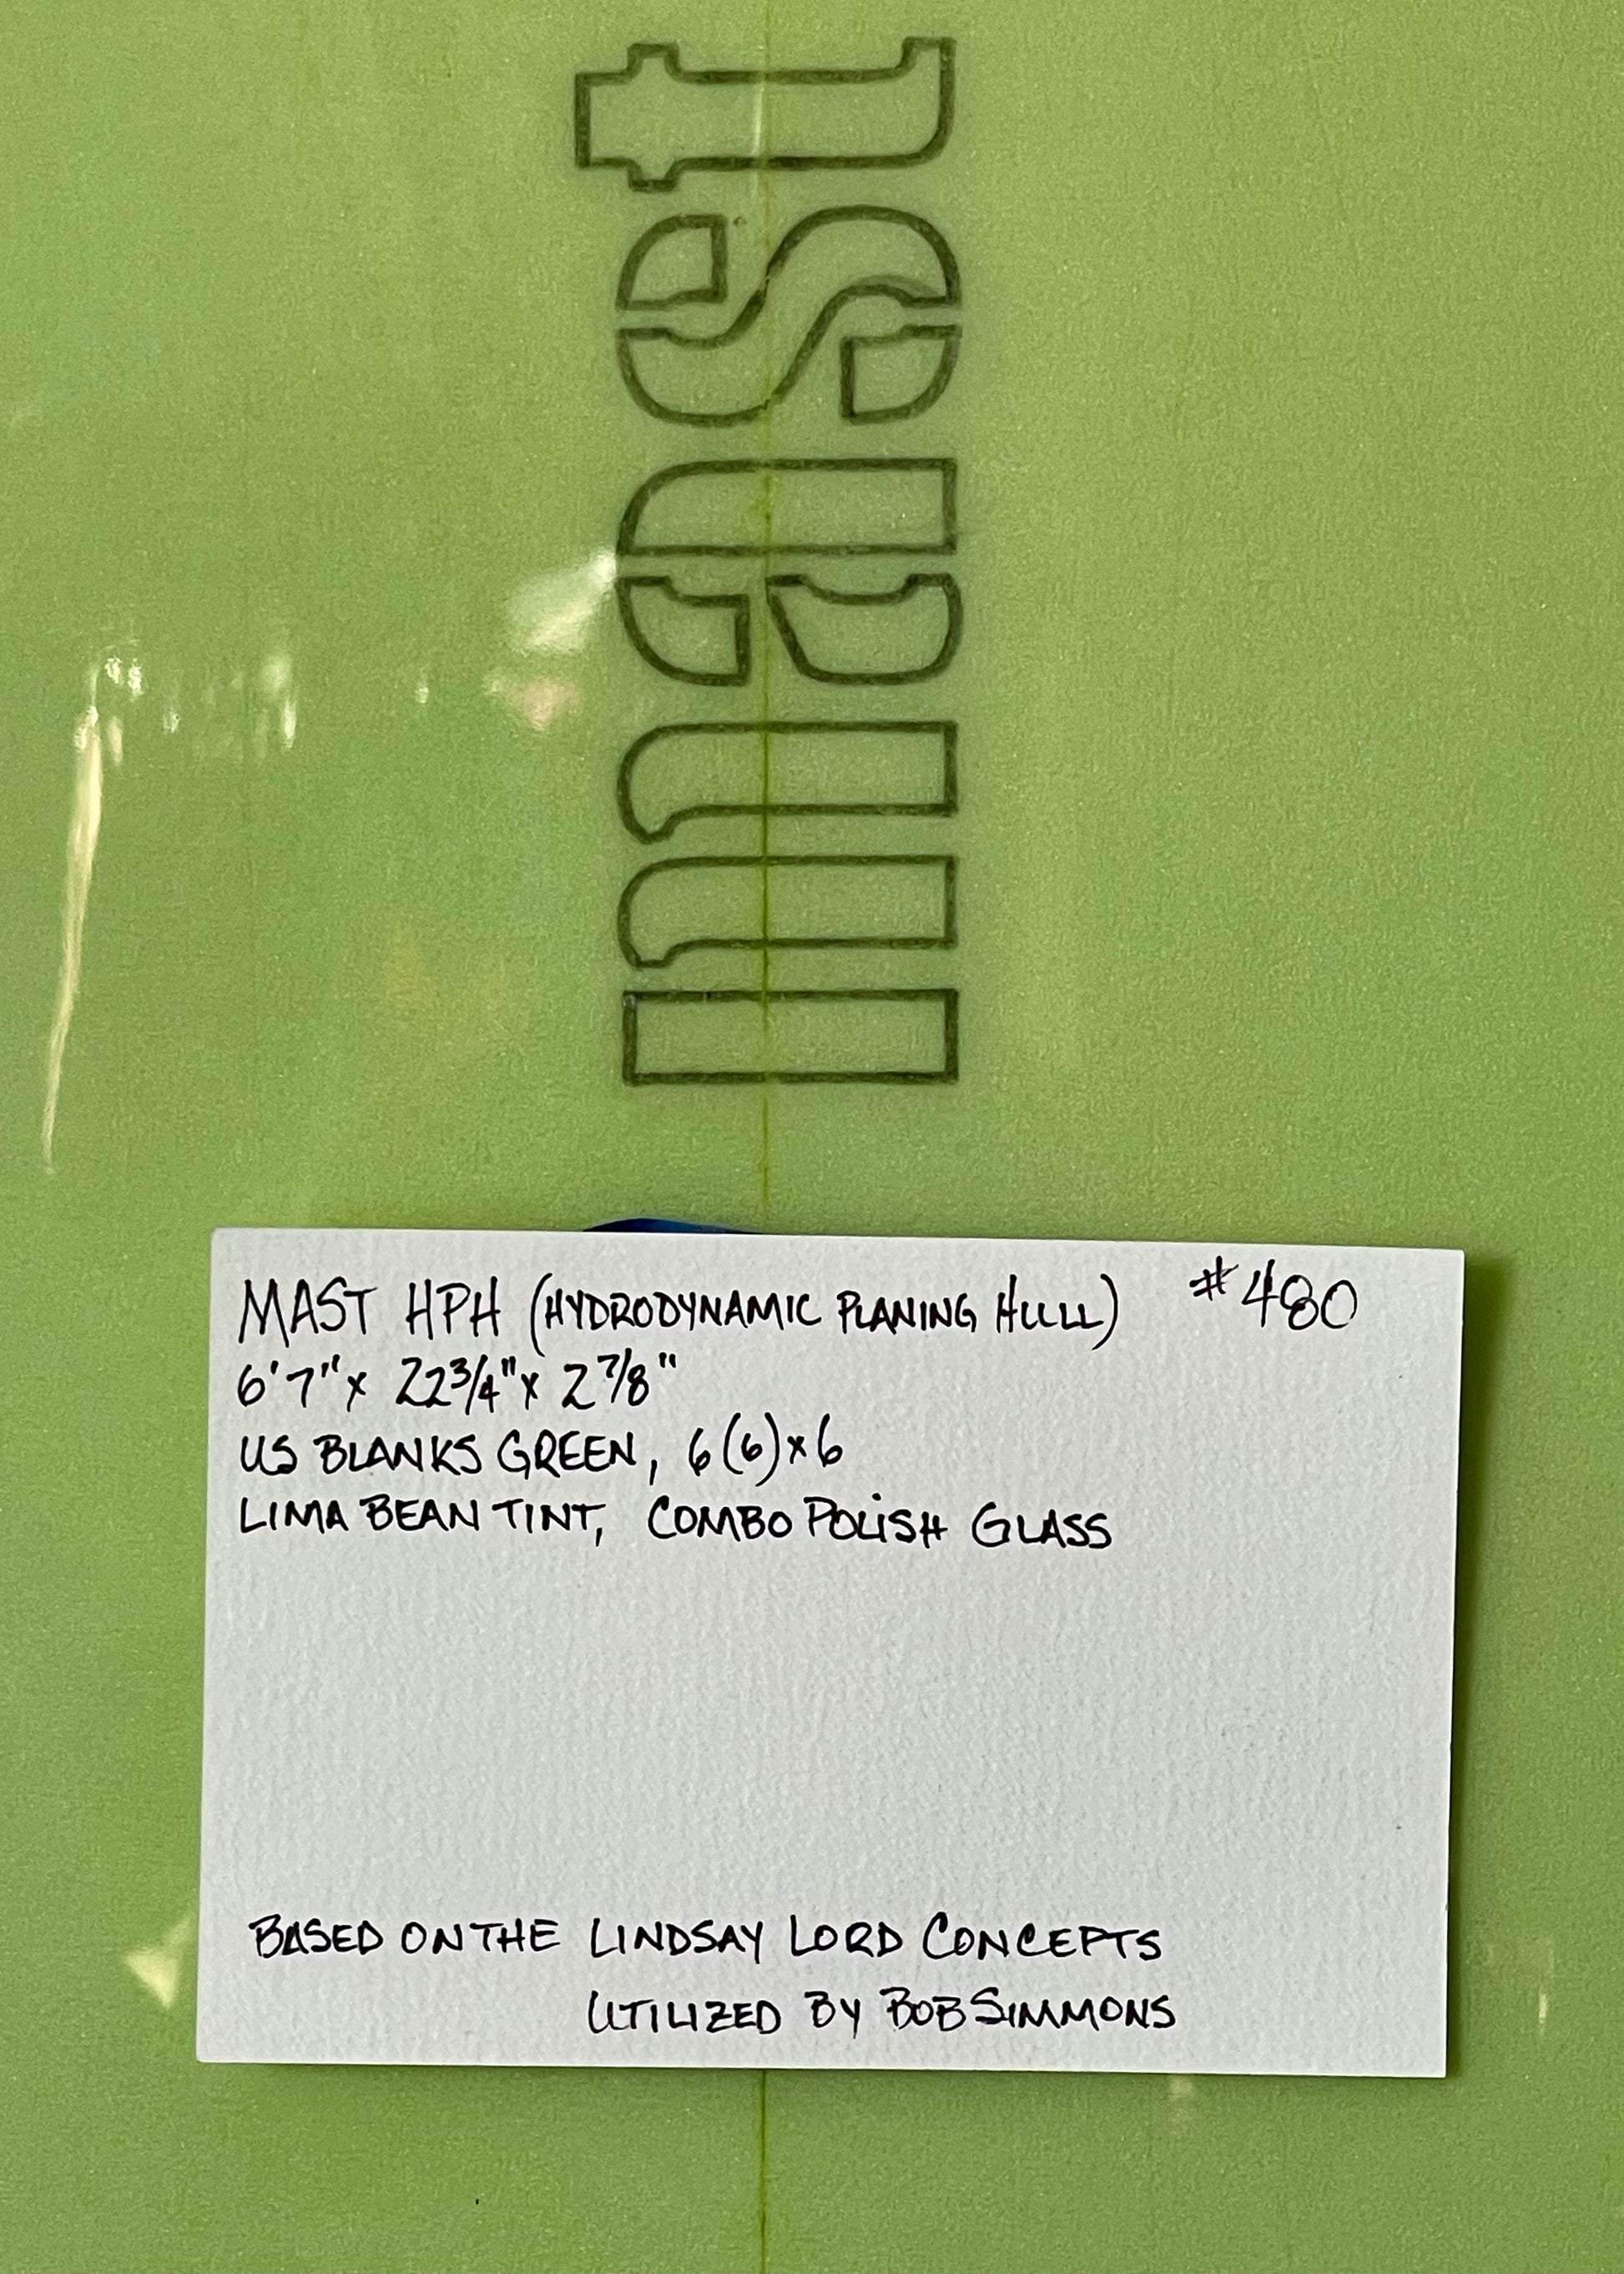 mast
MAST HPH (HYDRODYNAMIC PLANING HULL) #480
6'7" x 22 3/4" x 2 7/8"
US BLANKS GREEN, 6(6)x6
LIMA BEAN TINT, COMBO POLISH GLASS
BASED ON THE LINDSAY LORD CONCEPTS
UTILIZED BY BOB SIMMONS